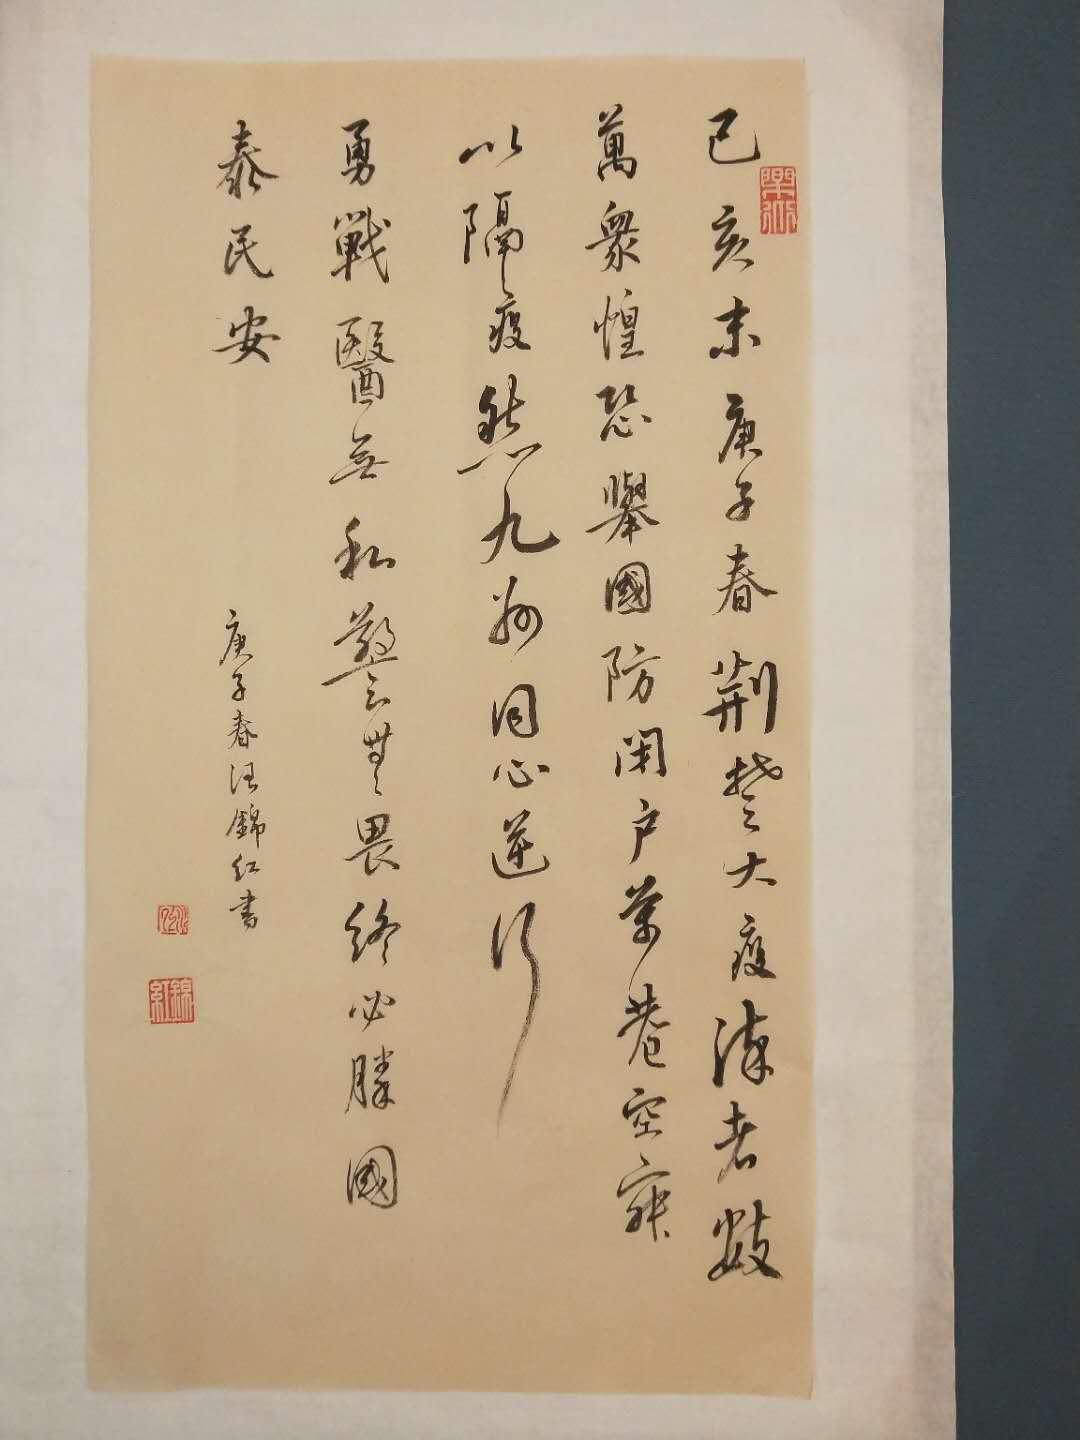 己亥末庚子春荆楚大疫染者數
萬衆惶恐舉國防閑户萧巷空寂
以隔疫然九州同心逆行
勇戰醫無私警無畏終必勝國
泰民安
庚子春汪錦红書
錦紅